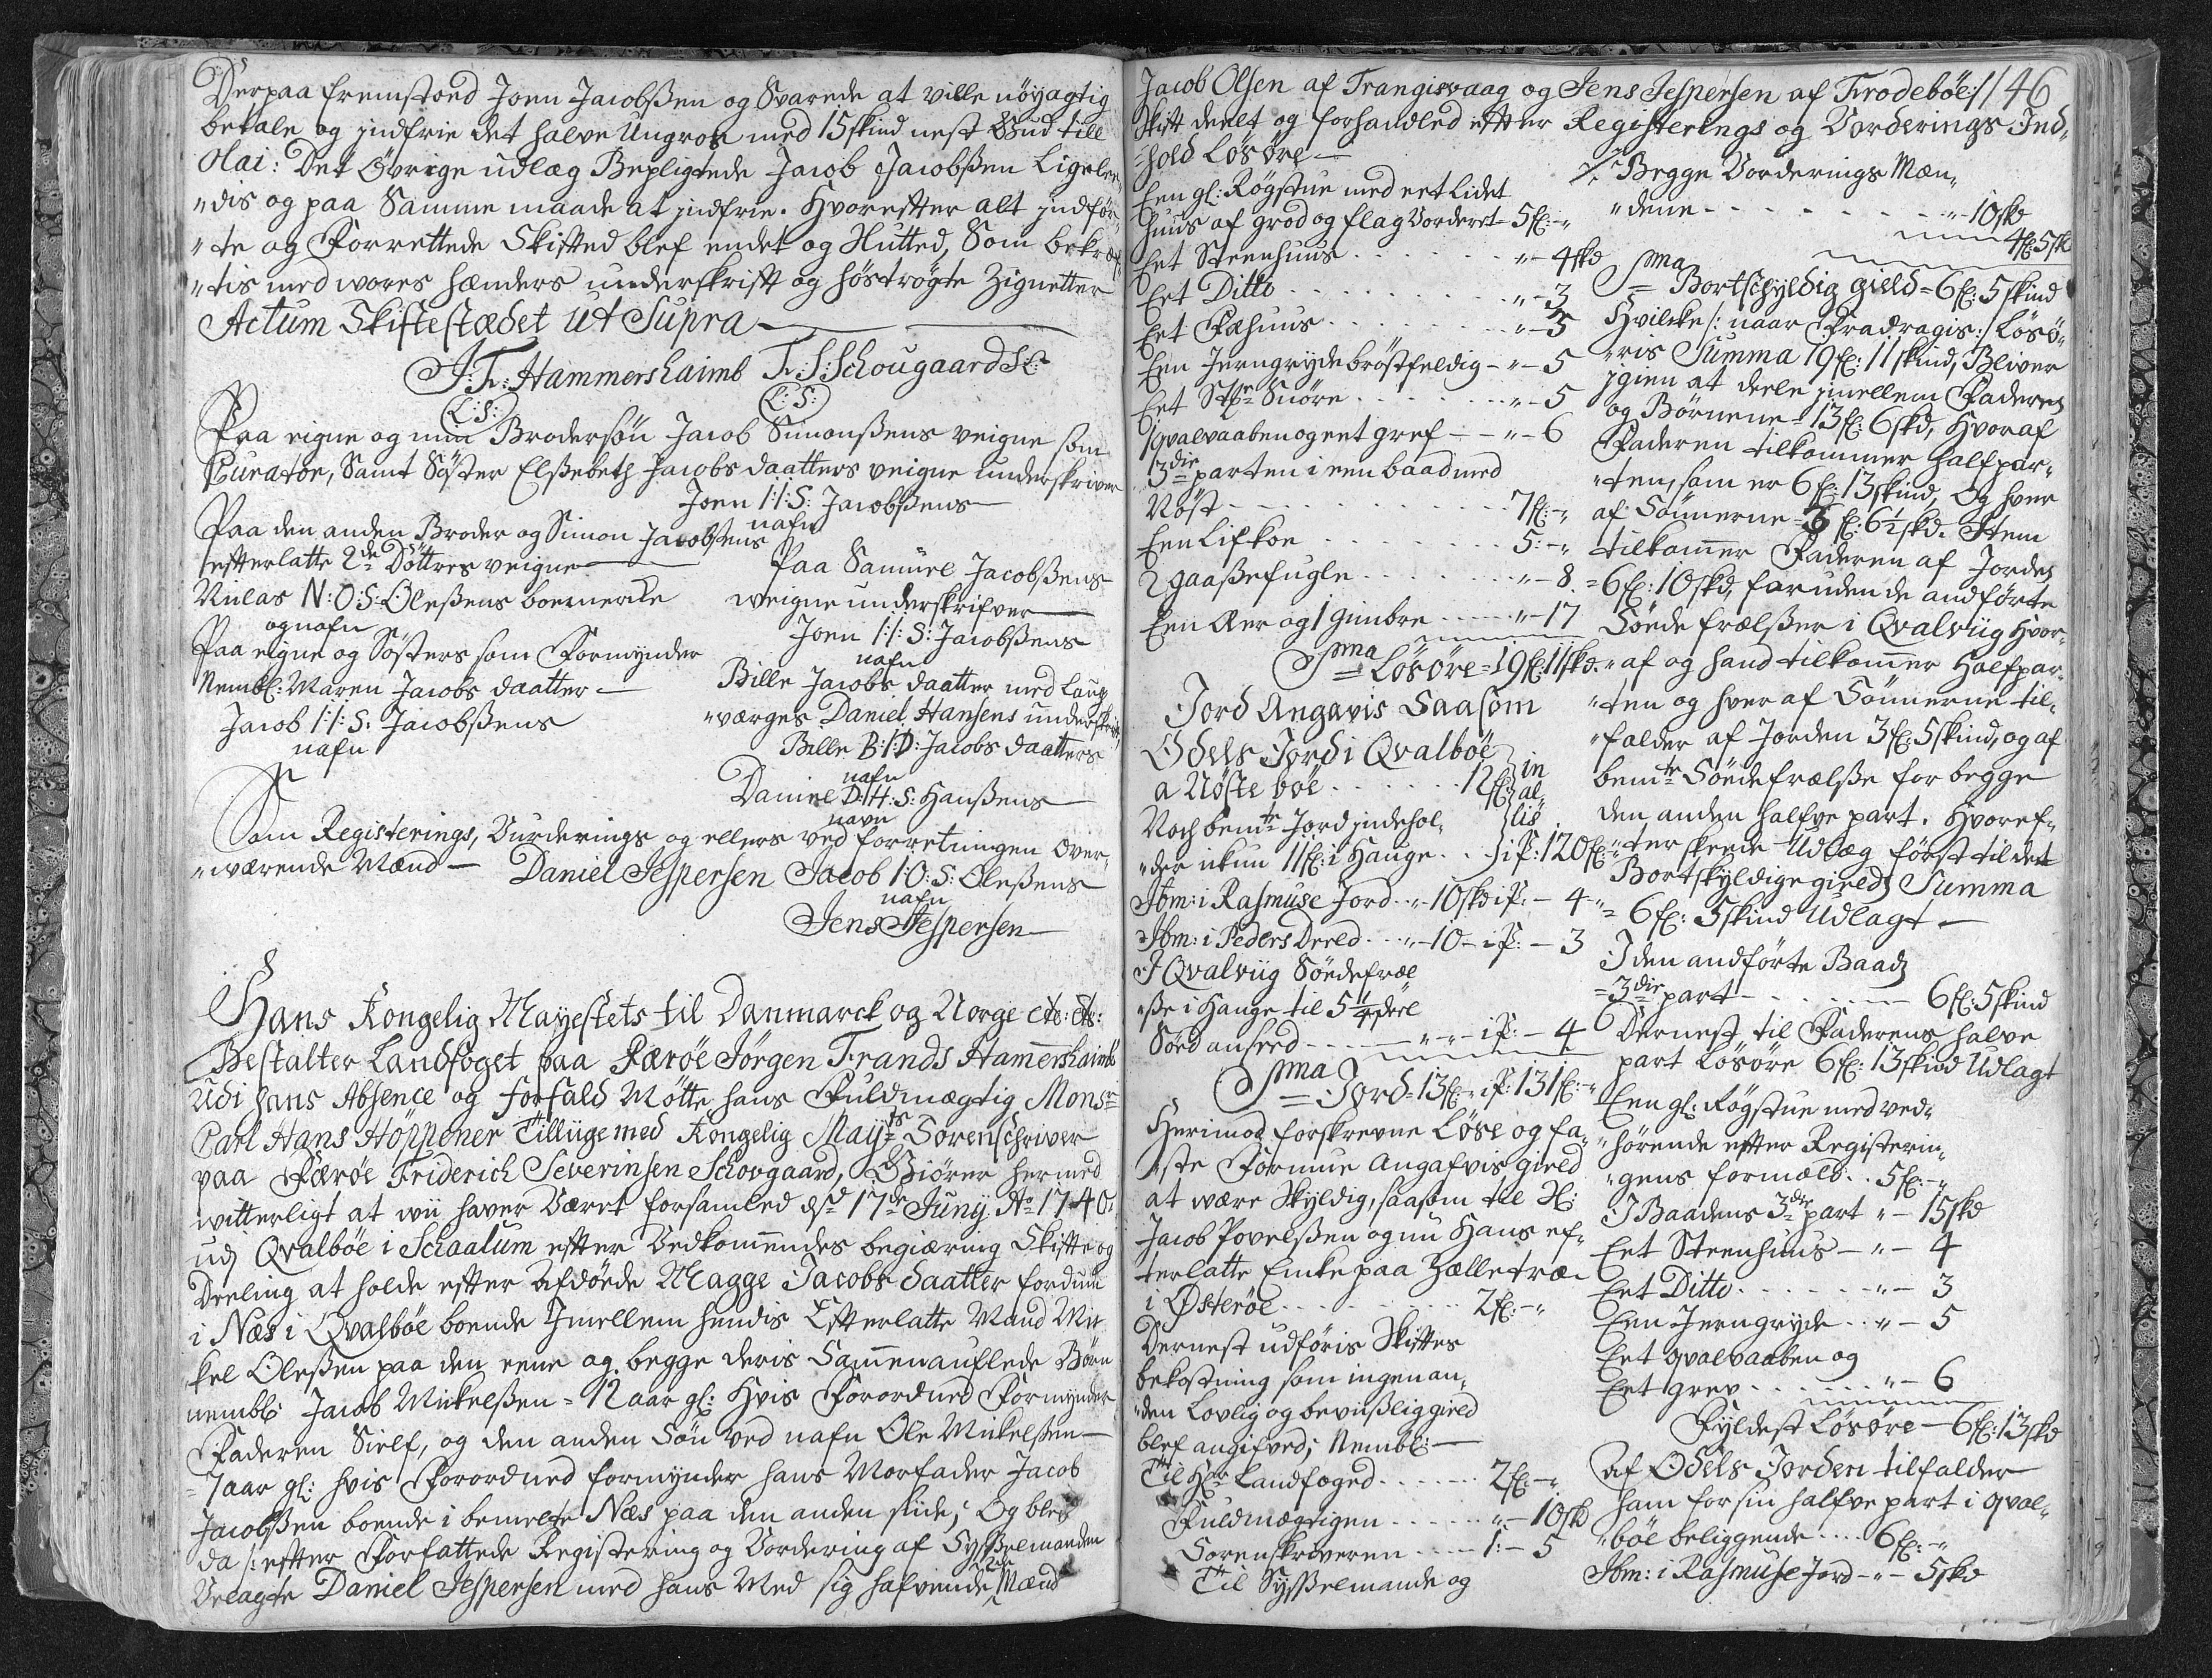 Derpaa fremstoed Joen Jacobßen og Svarede at ville nöyagtig
betale og jndfrie det halve Ungros med 15 skind nest Bud till
Olai: Det Övrige udlæg Bepligtede Jacob Jacobßen Ligele„
„dis og paa Samme maade at jndfrie. Hvorefter alt jndför„
„te og Forrettede Skifted blef endet og Slutted, Som bekræf„
„tis med wores hænders underskrift og höströgte Zignetter
Actum Skiftestædet ut Supra
J: F: Hammershaimb F: S: Schougaard
(L: S:) (L: S:)
Paa eigne og min Brodersön Jacob Simonßens veigne som
Curator, Samt Söster Elßebeth Jacobs daatters veigne underskriver
Joen I: I: S: Jacobßens
nafn
Paa den anden Broder og Simon Jacobßens
efterlatte 2de Döttres veigne
Niclas N: O: S: Oleßens boemercke
og nafn
Paa eigne og Sösters som Formynder
Nembl: Maren Jacobs daatter
Jacob I: I: S: Jacobßens
nafn
Paa Samuel Jacobßens
weigne underskrifver
Joen I: I: S: Jacobßens
nafn
Bille Jacobs daatter med Laug„
„værges Daniel Hansens underskrift
Bille B: I: D: Jacobs daatters
nafn
Daniel D: H: S: Hanßens
navn
Som Registerings, Vurderings og ellers ved forretningen over„
„wærende Mænd Daniel Jespersen Jacob I: O: S: Oleßens
nafn
Jens Jespersen
Hans Kongelig Mayestets til Danmarck og Norge etc: etc:
Bestalter Landfoget paa Færöe Jörgen Frands Hamershaimb
udi hans Absence og forfald Mötte hans Fuldmægtig Monsr
Carl Hans Höppener Tilliige med Kongelig Mayts Sorenschriver
paa Færöe Friderich Severinsen Schougaard, Giörer hermed
witterligt at wii haver Været forsamled dend 17de Junij Ao 1740
udj Qvalböe i Schaalum efter Vedkommendes begiæring Skifte og
Deeling at holde efter Afdöede Magge Jacobs daatter fordum
i Næs i Qvalböe boende Jmellem hendis Efterlatte Mand Mic
kel Oleßen paa den eene og begge deris Sammenauflede Börn
nembl: Jacob Mickelßen = 12 aar gl: hvis Forordned Formynder
Faderen Sielf, og den anden Sön ved nafn Ole Mickelßen
= 7 aar gl: hvis Forordned formynder hans Morfader Jacob
Jacobßen boende i bemelte Næs paa den anden side; Og blef
da /: efter Forfattede Registering og Vordering af Sysselmanden
Velagte Daniel Jespersen med hans Med sig hafvende 2de Mænd
Jacob Olsen af Trangisvaag og Jens Jespersen af Frodeböe :/ 46
Skift deelt og forhandled efter Registerings og Vorderings Ind„
„hold Lösöre
Een gl: Rögstue med eet Lidet
huus af grod og flag Vorderet 5 fl: „
Eet Steenhuus . . . „ - 4 skd
Eet Ditto . . . „ - 3
Eet Fæhuus . . . „ - 5
Een Jerngryde bröstfeldig - „ - 5
Eet Stk Snöre . . . „ - 5
1 qvalvaaben og eet gref - „ - 6
3die parten i een baad med
Nöst . . . 7 fl: - „
Een Lifkoe . . . 5: - „
2 gaaßefugle . . . „ - 8
Een Aer og 1 gimbre . . . „ - 17
Sma Lösöre = 19 fl: 11 skd.
Jord Angavis Saasom
Odels Jord i Qvalböe
a Nöste böe . . . 12 fl: in
al
lis
Noch bemte Jord jndehol„
„der ickun 11 fl: i Hauge . . i P: 120 fl: „
Ibm: i Rasmuse Jord „ - 10 skd i P: - 4 „
Ibm: i Peders Deeld . . „ - 10 - i P: - 3
I Qvalviig Söedefræl
„ße i Hauge til 5 1/4 deel
Soed anseed . . . „ „ - i P: - 4
Sma Jord = 13 fl: - i P: 131 fl: „
Herimod forskrevne Löse og fa„
„ste Formue Angafvis gield
at være Skyldig, saasom til H:
Jacob Povelßen og nu Hans ef„
terlatte Encke paa Zælletræ
i Österöe . . . 2 fl: - „
Dernest udföris Skiftes
bekostning som ingen an„
„den Lovlig og beviißlig gield
blef angifved; Nembl:
Til Hr Landfoged . . . 2 fl: - „
Fuldmægtigen . . . „ - 10 skd
Sorenskriveren . . . 1: - 5
Til Sysselmande og
Begge Vorderings Mæn„
„dene . . . „ - 10 skd
4 fl: 5 sk
Sma Bortschyldig gield = 6 fl: 5 skind
Hvilcke /: naar Fradragis :/ Lösö„
„ris Summa 19 fl: 11 skind, Bliver
jgien at deele jmellem Faderen
og Börnene = 13 fl: 6 skd, hvoraf
Faderen tilkommer halfpar„
„ten, som er 6 fl: 13 skind, Og hver
af Sönnerne = 3 fl: 6 1/2 skd. Item
tilkommer Faderen af Jorden
= 6 fl: 10 skd, foruden de andförte
Söede frælßer i Qvalviig hvor„
„af og hand tilkommer halfpar„
„ten og hver af Sönnerne til„
„falder af Jorden 3 fl: 5 skind, og af
bemte Söedefrælße for begge
den anden halfve part. Hvoref„
„ter skeede Udlæg först til det
Bortskyldige gields Summa
= 6 fl: 5 skind Udlagt
I den andförte Baads
= 3die part . . . 6 fl: 5 skind
Dernest til Faderens halve
part Lösöre 6 fl: 13 skind Udlagt
Een gl: Rögstue med ved„
„hörende efter Registerin„
„gens formæld . . 5 fl: - „
I Baadens 3die part „ - 15 skd
Eet Steenhuus - „ - 4
Eet Ditto . . . „ - 3
Een Jerngryde . . „ - 5
Eet qvalvaaben og
Eet grev . . . „ - 6
Fyldest Lösöre - 6 fl: 13 skd
Af Odels Jorden tilfalder
ham for sin halfve part i qval„
„böe beliggende . . . 6 fl: - „
Ibm: i Rasmuse Jord - „ - 5 skd